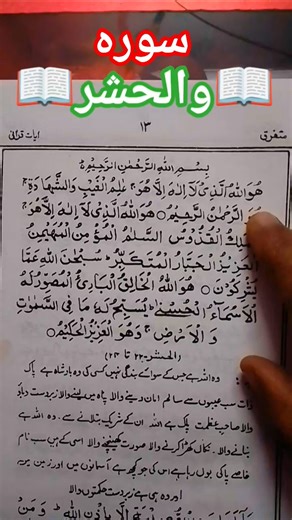 سورہ
والحشر
متفرق ۱۳ آیات قرآنی
بِسْمِ اللّٰهِ الرَّحْمٰنِ الرَّحِيْمِ
هُوَاللّٰهُ الَّذِىْ لَاۤ اِلٰهَ اِلَّا هُوَ ۚ عٰلِمُ الْغَيْبِ وَالشَّهَادَةِ ۚ
الرَّحْمٰنُ الرَّحِيْمُ ○ هُوَاللّٰهُ الَّذِىْ لَاۤ اِلٰهَ اِلَّا هُوَ ۚ
الْقُدُّوْسُ السَّلٰمُ الْمُؤْمِنُ الْمُهَيْمِنُ
الْعَزِيْزُ الْجَبَّارُ الْمُتَكَبِّرُ ؕ سُبْحٰنَ اللّٰهِ عَمَّا
يُشْرِكُوْنَ ○ هُوَ اللّٰهُ الْخَالِقُ الْبَارِئُ الْمُصَوِّرُ لَهُ
الْاَسْمَآءُ الْحُسْنٰى ؕ يُسَبِّحُ لَهٗ مَا فِى السَّمٰوٰتِ
وَ الْاَرْضِ ۚ وَهُوَ الْعَزِيْزُ الْحَكِيْمُ ○
(الحشر-۲۲ تا ۲۴)
وہ اللہ ہے جس کے سوائے بندگی نہیں کسی کی وہ بادشاہ ہے پاک
ذات سب عیبوں سے سالم امان دینے والا پناہ میں لینے والا زبردست دباؤ
والا صاحب عظمت پاک ہے اللہ ان کے شریک بتلانے سے۔ وہ اللہ ہے
بنانے والا۔ نکال کھڑا کرنے والا صورت کھینچنے والا اسی کے ہیں سب نام
خاصے پاکی بول رہا ہے اس کی جو کچھ ہے آسمانوں میں اور زمین میں
اور وہ ہی ہے زبردست حکمتوں والا
اِلَّا بِاِذْنِ اللّٰهِ ؕ وَمَنْ